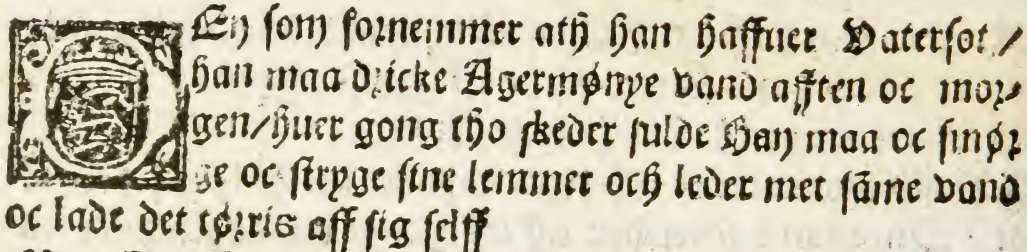 DEn som fornemmer ath han haffuer Vatersot /
han maa dricke Agermønye vand afften oc mor⸗
gen / huer gong tho skeder fulde Han maa oc smør
ge oc stryge sine lemmer och leder met sāme vand
oc lade det tørris aff sig selff